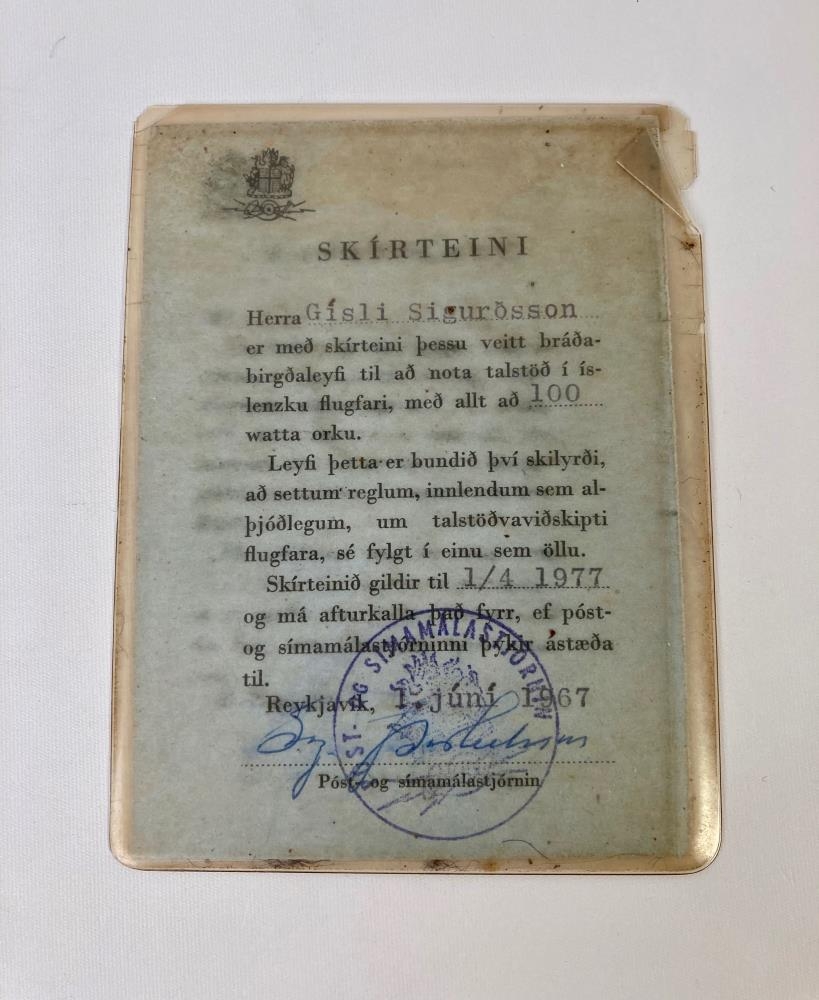 SKÍRTEINI
Herra Gísli Sigurðsson
er með skírteini þessu veitt bráða-
birgðaleyfi til að nota talstöð í ís-
lenzku flugfari, með allt að 100
watta orku.
Leyfi þetta er bundið því skilyrði,
að settum reglum, innlendum sem al-
þjóðlegum, um talstöðvaviðskipti
flugfara, sé fylgt í einu sem öllu.
Skírteinið gildir til 1/4 1977
og má afturkalla það fyrr, ef póst-
og símamálastjórninni þykir ástæða
til.
Reykjavík, 1. júní 1967
Póst- og símamálastjórnin
PÓST- OG SÍMAMÁLASTJÓRNIN